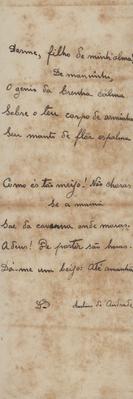 Dorme, filho de minh'alma!
De mansinho,
O genio da crença calma
Sobre o teu corpo de arminho
Seu manto de flôr espalma.
Como és tão meigo! Não choras
Se a mamã
Sae da caverna onde moras;
Adeus! De partir são horas.
Dá-me um beijo: Até amanhã
de Andrade